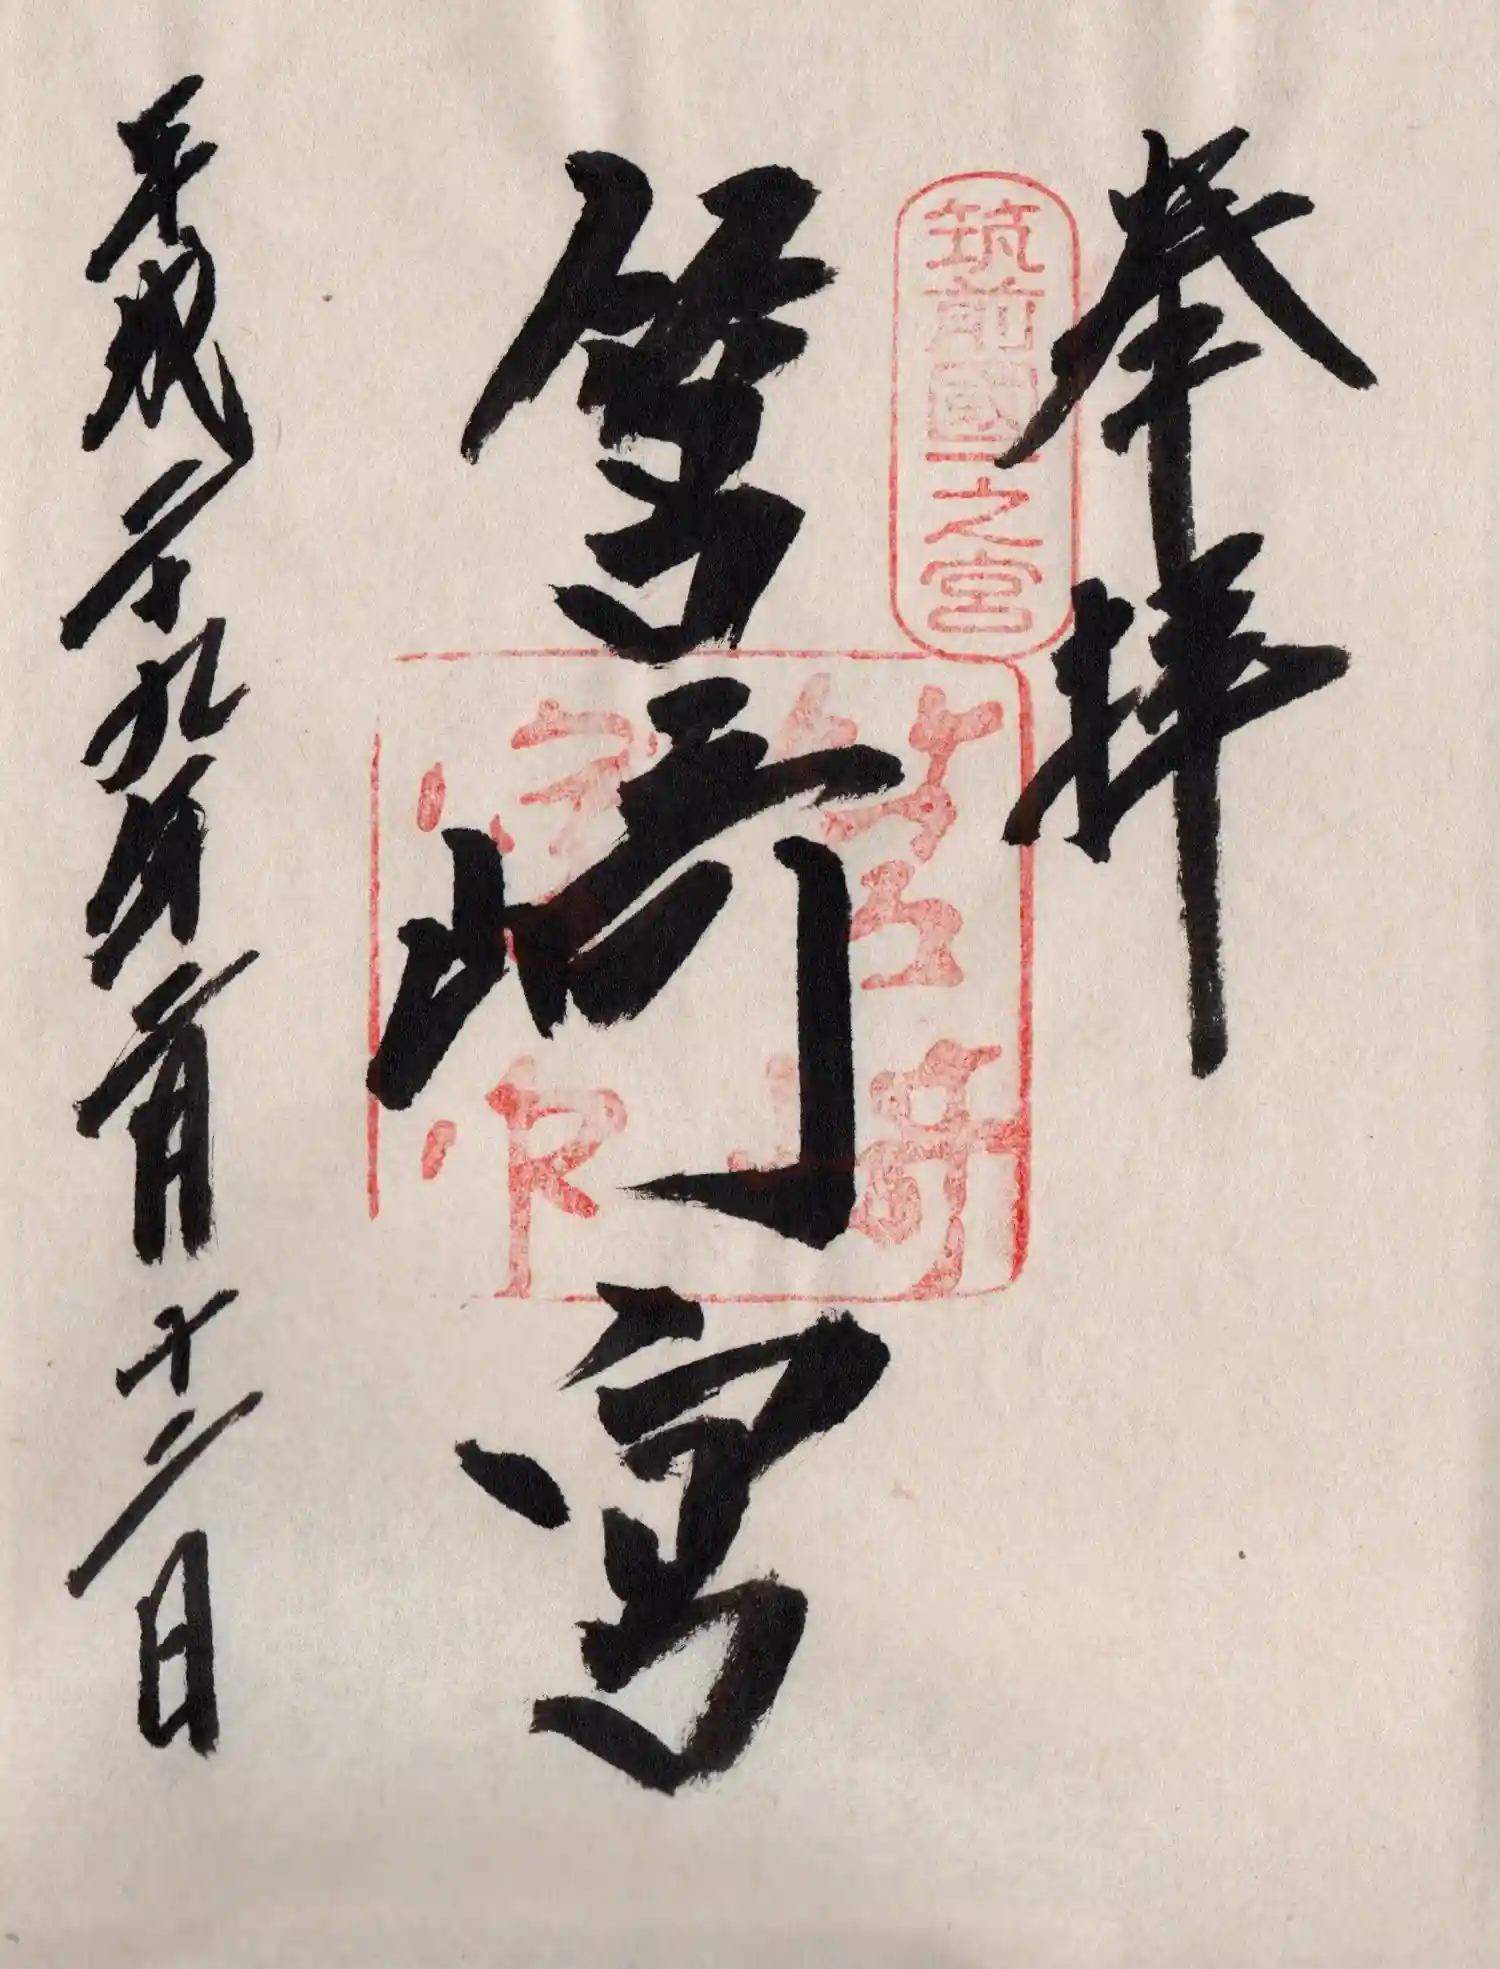 奉拝
筑前國一之宮
筥崎宮
筥崎宮印
平成二十九年二月十二日